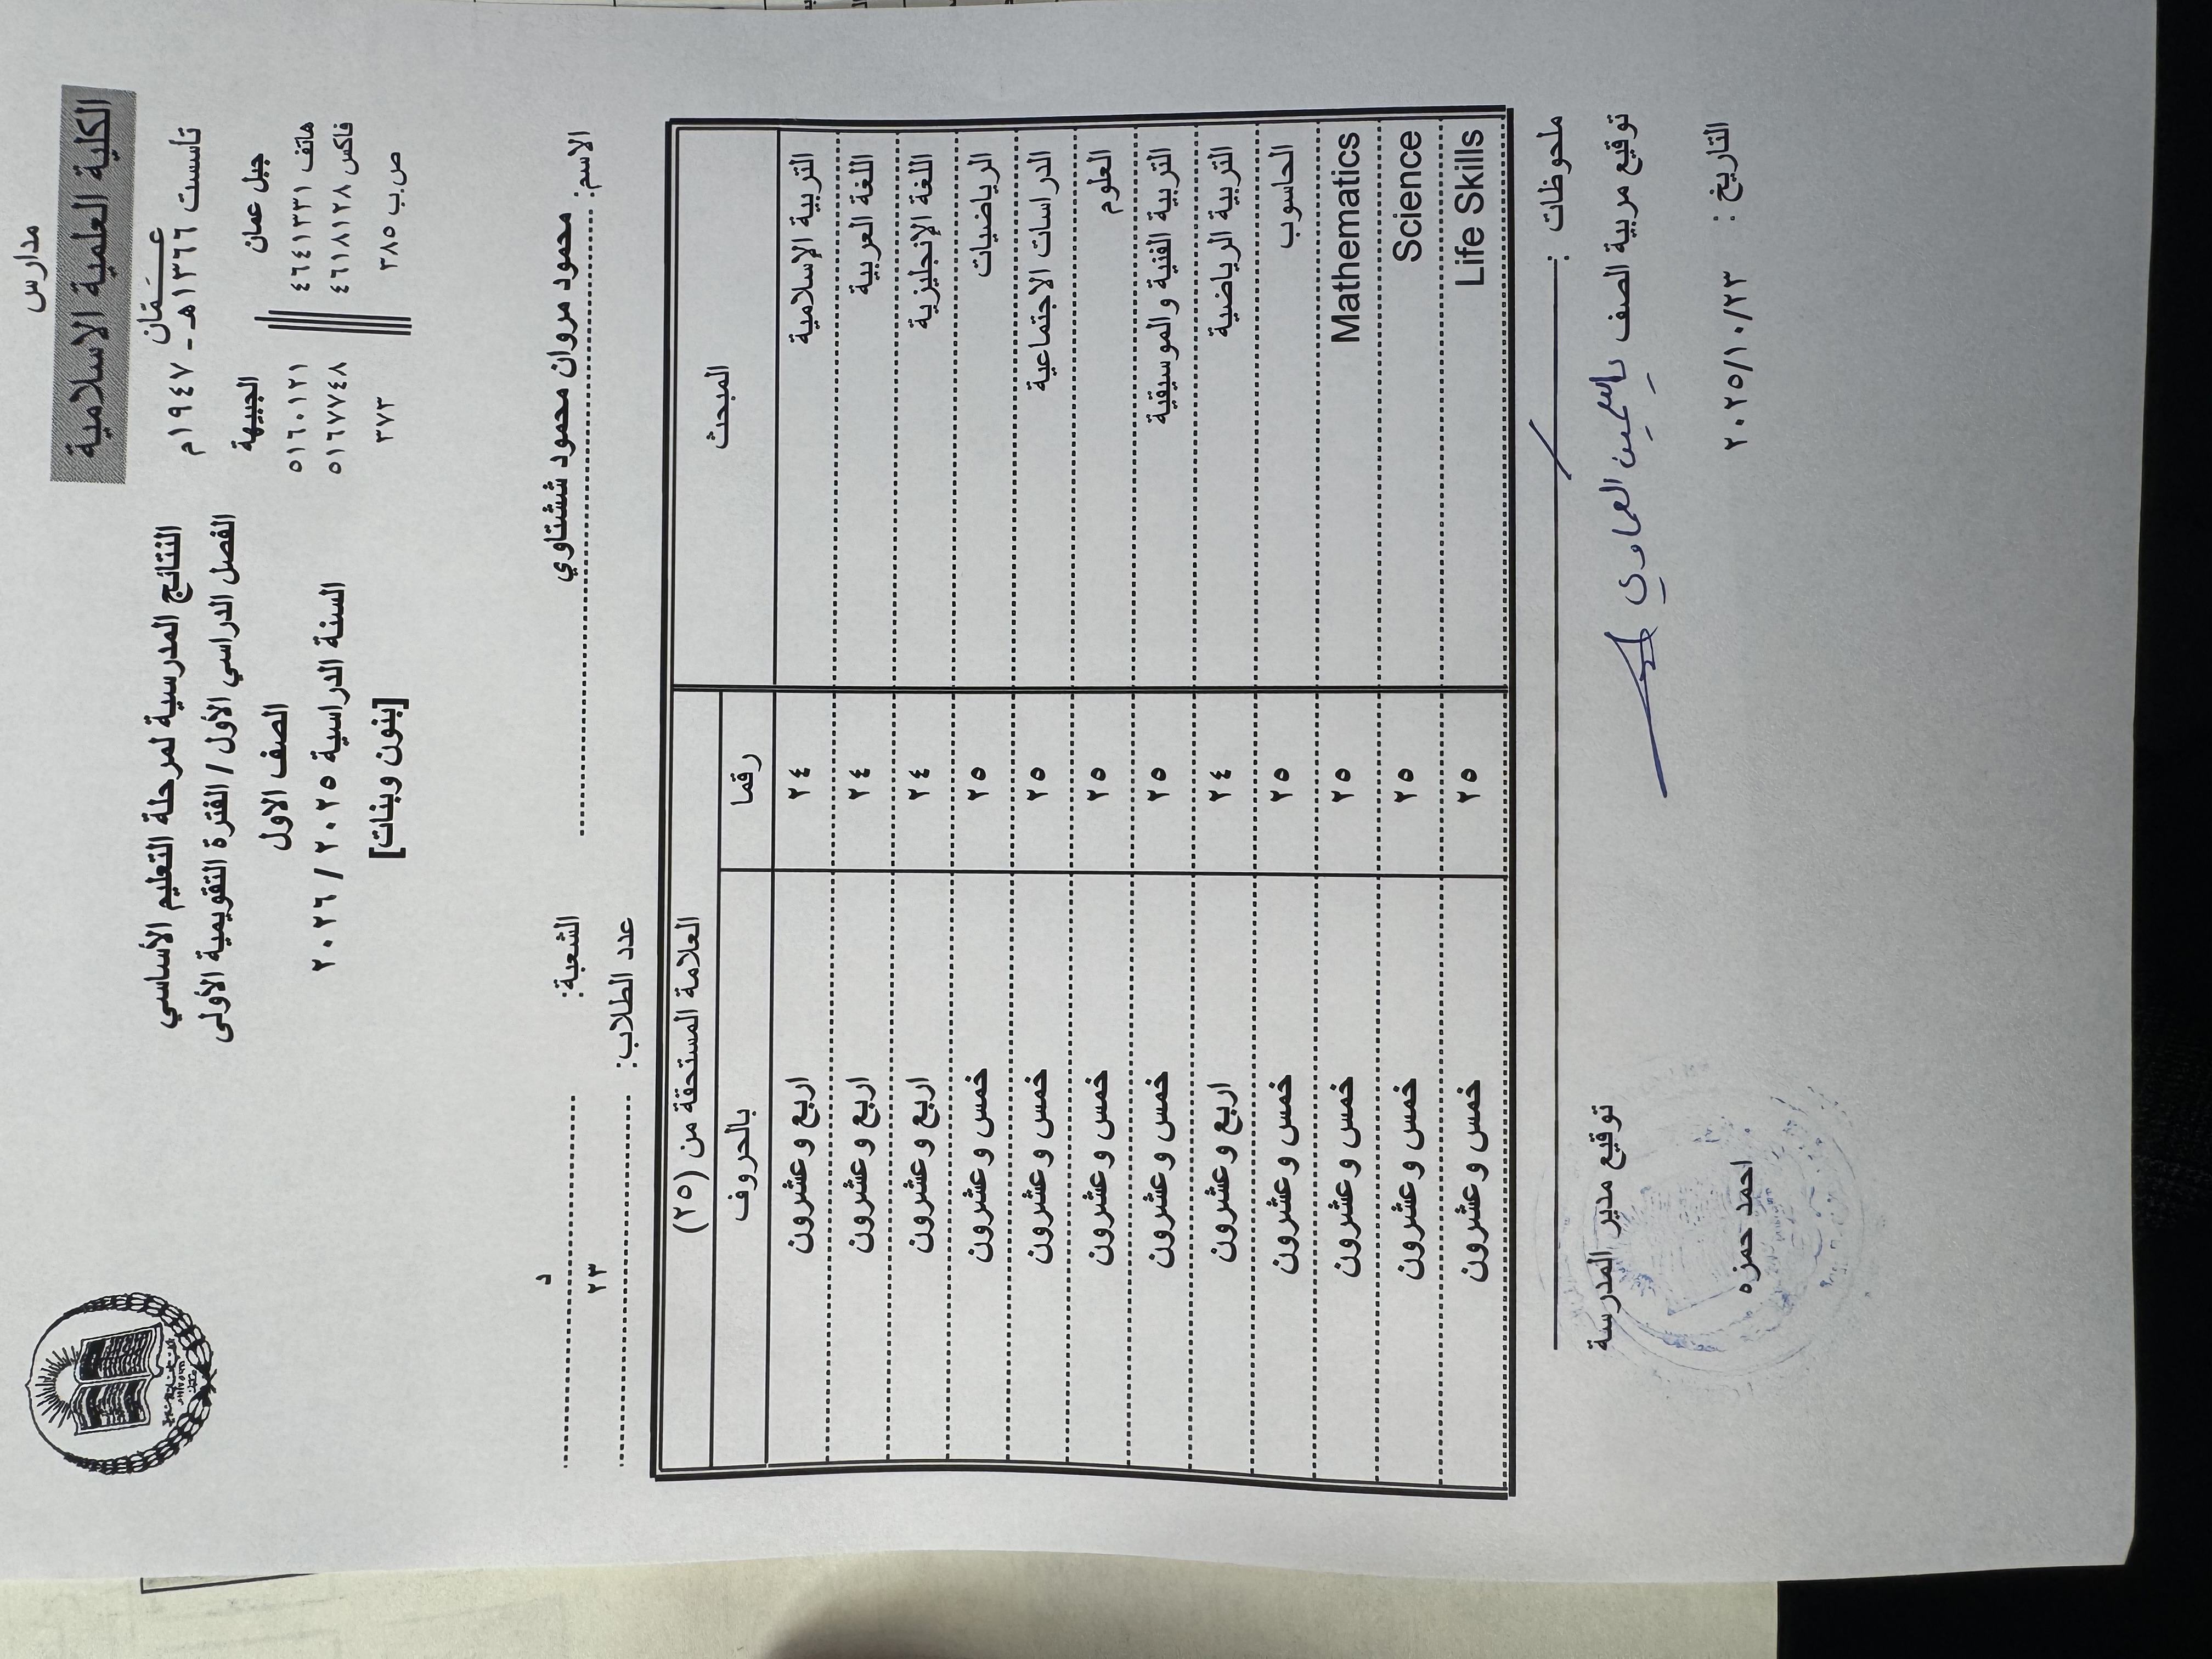 مدارس
الكلية العلمية الاسلامية
عـــمّان
تأسست ١٣٦٦هـ - ١٩٤٧م
جبل عمان الجبيهة
هاتف ٤٦٤١٣٣١ ٥١٦٠١٢١
فاكس ٤٦١٨١٢٨ ٥١٦٧٧٤٨
ص.ب ٣٨٥ ٣٧٣
النتائج المدرسية لمرحلة التعليم الأساسي
الفصل الدراسي الأول / الفترة التقويمية الأولى
الصف الاول
السنة الدراسية ٢٠٢٥ / ٢٠٢٦
[بنون وبنات]
الاسم: محمود مروان محمود ششتاوي الشعبة: د
عدد الطلاب: ٢٣
المبحث العلامة المستحقة من (٢٥)
رقما بالحروف
التربية الإسلامية ٢٤ اربع وعشرون
اللغة العربية ٢٤ اربع وعشرون
اللغة الإنجليزية ٢٤ اربع وعشرون
الرياضيات ٢٥ خمس وعشرون
الدراسات الاجتماعية ٢٥ خمس وعشرون
العلوم ٢٥ خمس وعشرون
التربية الفنية والموسيقية ٢٥ خمس وعشرون
التربية الرياضية ٢٤ اربع وعشرون
الحاسوب ٢٥ خمس وعشرون
Mathematics ٢٥ خمس وعشرون
Science ٢٥ خمس وعشرون
Life Skills ٢٥ خمس وعشرون
ملحوظات :
توقيع مربية الصف ياسمين العماوي توقيع مدير المدرسة
احمد حمزه
التاريخ : ٢٠٢٥/١٠/٢٣